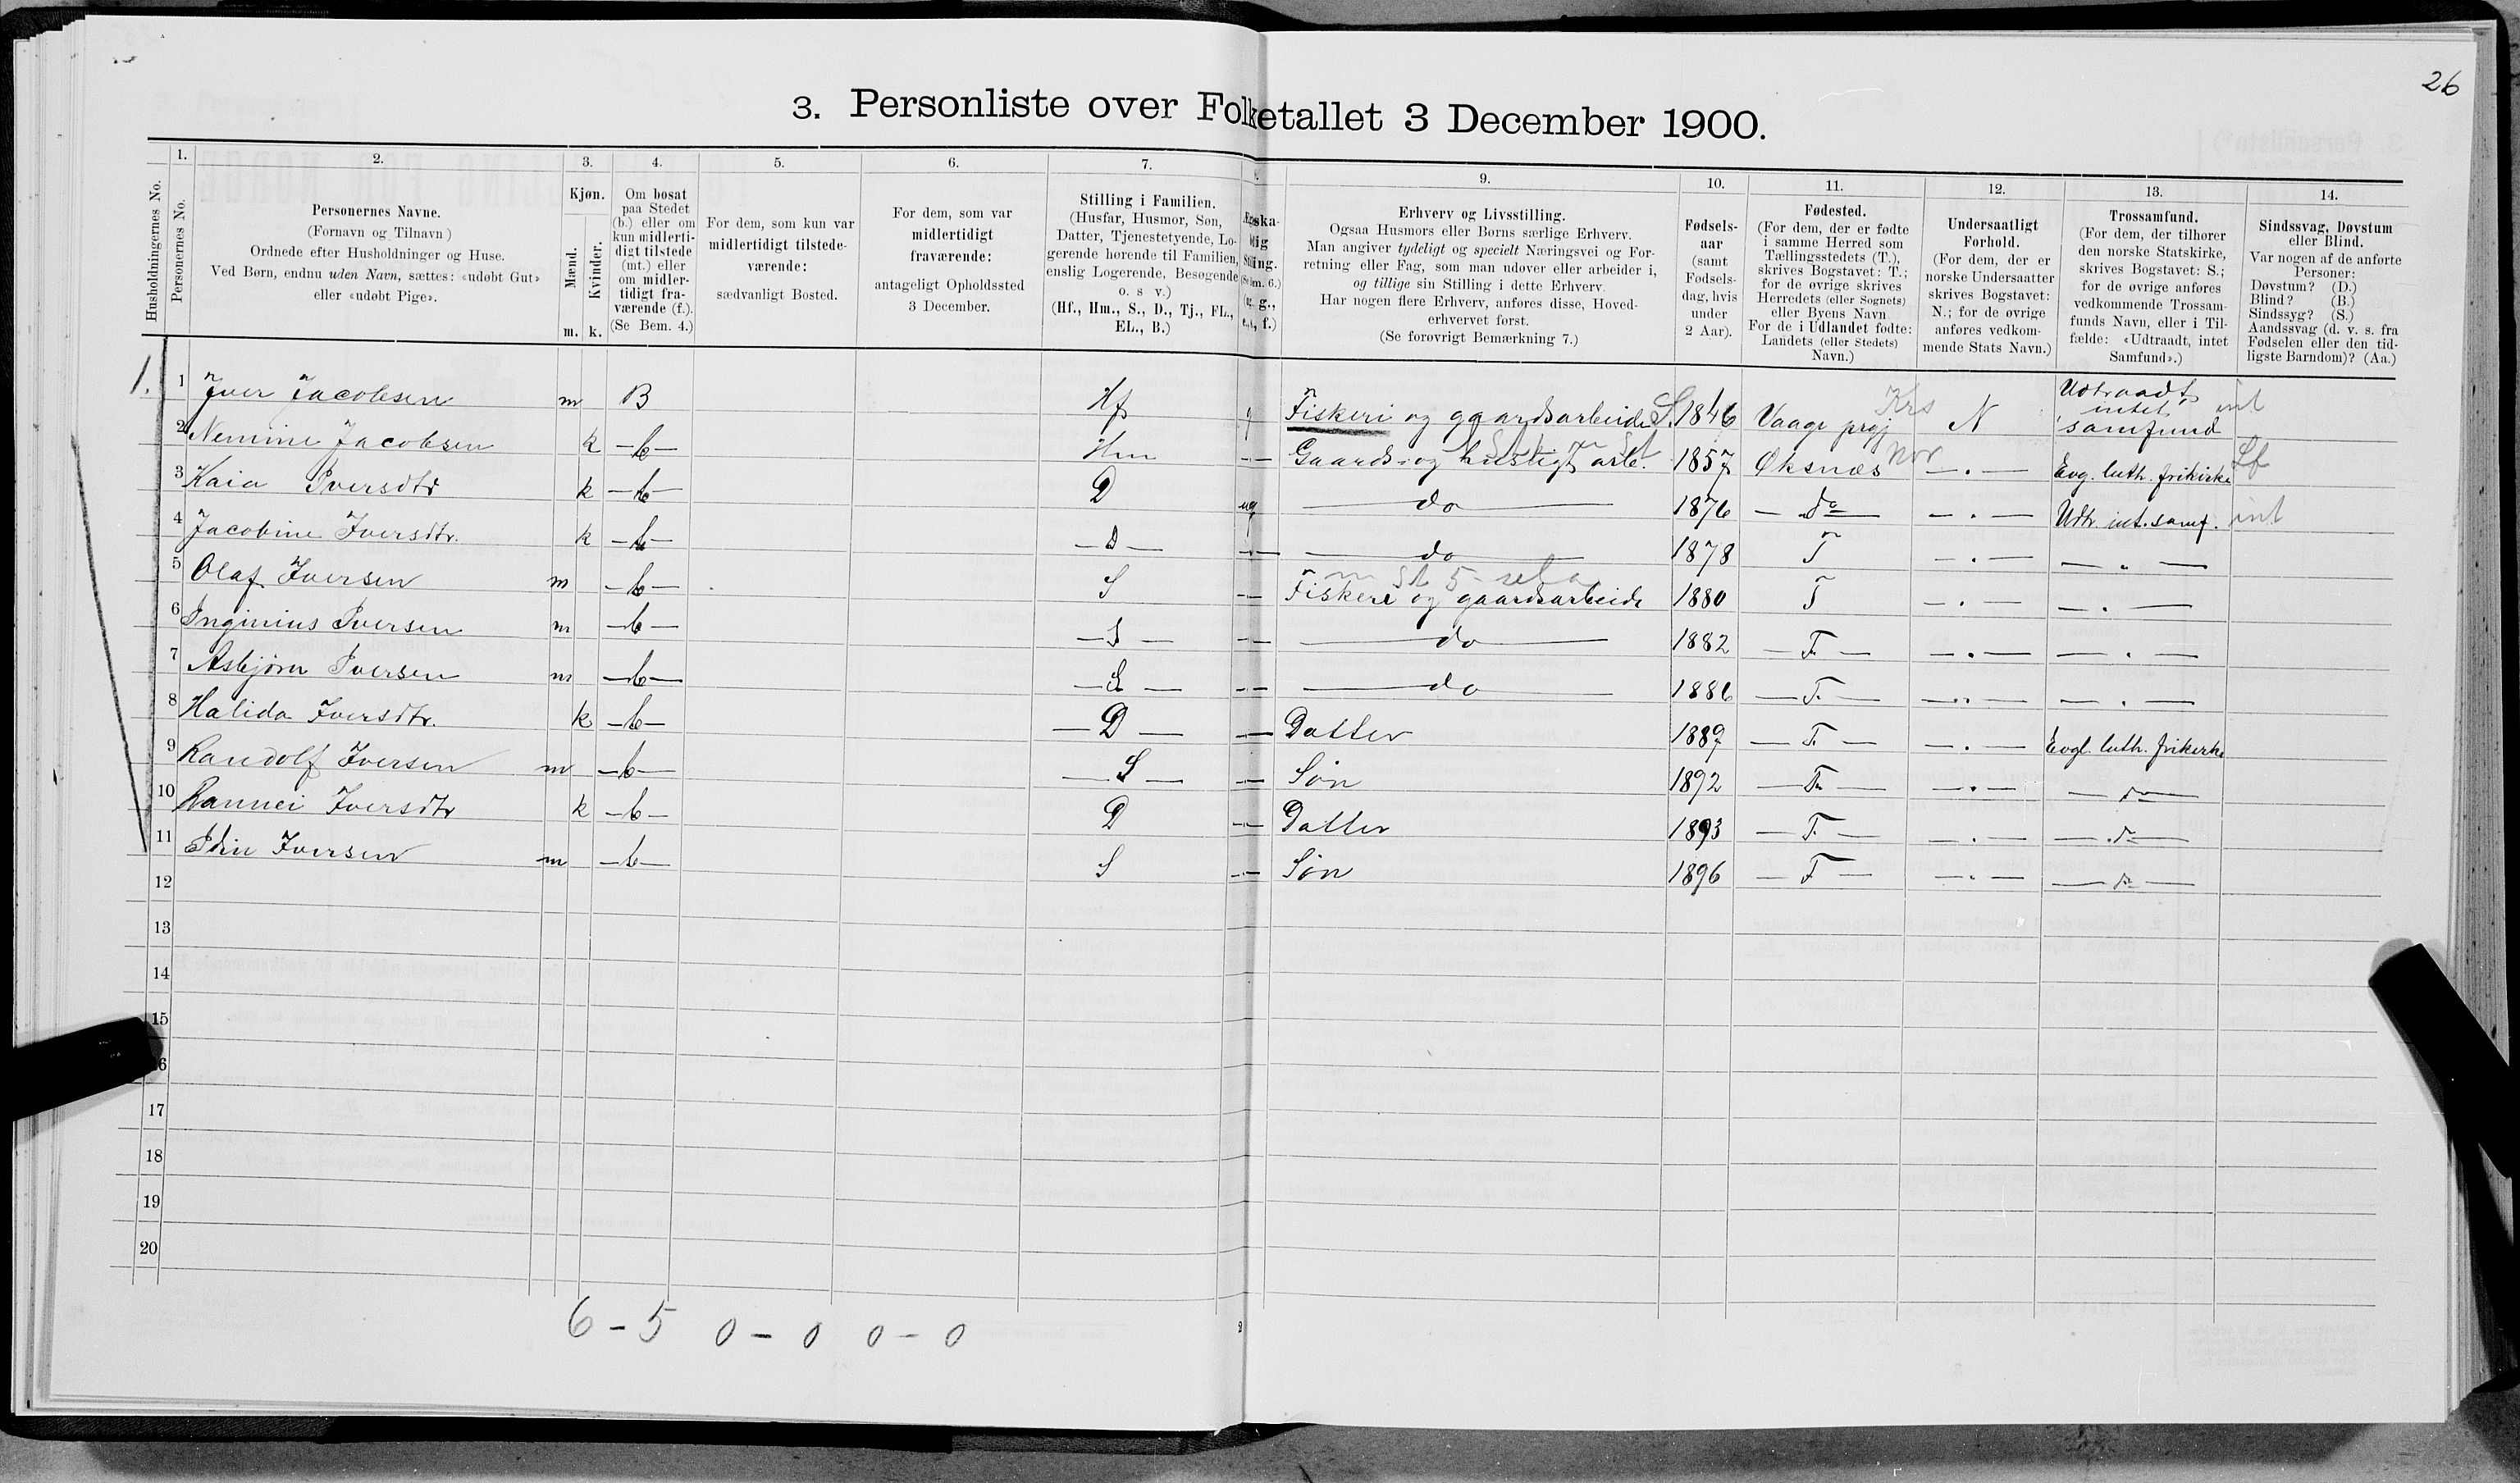 26
3. Personliste over Folketallet 3 December 1900.
1. 2. 3. 4. 5. 6. 7. 9. 10. 11. 12. 13. 14.
Husholdningernes No.
Personernes No.
Personernes Navne.
(Fornavn og Tilnavn)
Ordnede efter Husholdninger og Huse.
Ved Børn, endnu uden Navn, sættes: «udøbt Gut»
eller «udøbt Pige».
Kjøn.
Mænd.
Kvinder.
m. k.
Om bosat
paa Stedet
(b.) eller om
kun midlerti-
digt tilstede
(mt.) eller
om midler-
tidigt fra-
værende (f.).
(Se Bem. 4.)
For dem, som kun var
midlertidigt tilstede-
værende:
sædvanligt Bosted.
For dem, som var
midlertidigt
fraværende:
antageligt Opholdssted
3 December.
Stilling i Familien.
(Husfar, Husmor, Søn,
Datter, Tjenestetyende, Lo-
gerende hørende til Familien,
enslig Logerende, Besøgende
o. s v.)
(Hf., Hm., S., D., Tj., FL.,
EL., B.)
Erhverv og Livsstilling.
Ogsaa Husmors eller Børns særlige Erhverv.
Man angiver tydeligt og specielt Næringsvei og For-
retning eller Fag, som man udøver eller arbeider i,
og tillige sin Stilling i dette Erhverv.
Har nogen flere Erhverv, anføres disse, Hoved-
erhvervet først.
(Se forøvrigt Bemærkning 7.)
Fødsels-
aar
(samt
Fødsels-
dag, hvis
under
2 Aar).
Fødested.
(For dem, der er fødte
i samme Herred som
Tællingsstedets (T.),
skrives Bogstavet: T.;
for de øvrige skrives
Herredets (eller Sognets)
eller Byens Navn
For de i Udlandet fødte:
Landets (eller Stedets)
Navn.)
Undersaatligt
Forhold.
(For dem, der er
norske Undersaatter
skrives Bogstavet:
N.; for de øvrige
anføres vedkom-
mende Stats Navn.)
Trossamfund.
(For dem, der tilhører
den norske Statskirke,
skrives Bogstavet: S.;
for de øvrige anføres
vedkommende Trossam-
funds Navn, eller i Til-
fælde: «Udtraadt, intet
Samfund».)
Sindssvag, Døvstum
eller Blind.
Var nogen af de anførte
Personer:
Døvstum? (D.)
Blind? (B.)
Sindssyg? (S.)
Aandssvag (d. v. s. fra
Fødselen eller den tid-
ligste Barndom)? (Aa.)
1. 1 Iver Jacobsen m B Hf g Fiskeri og gaardsarbeide S. 1846 Vaage prgj Krs N Udtraadt intet samfund int
2 Nemine Jacobsen k — b — Hm — Gaards- og husligt arb. 1857 Øksnæs Nor — . — Evg. luth. frikirke Lf
3 Kaia Iversdtr k — b — D ug — do — 1876 — do — — . — Udtr. int. samf. int
4 Jacobine Iversdtr. k — b — — D — — — do — 1878 T — . — — " —
5 Olaf Iversen m — b — S — Fiskeri og gaardsarbeide 1880 T — . — — . —
6 Inginius Iversen m — b — — S — — — do — 1882 — T. — — . — — . —
7 Asbjørn Iversen m — b — — S — — — do — 1886 — T. — — . — — . —
8 Halida Iversdtr. k — b — — D — — Datter 1889 — T. — — . — Evgl. luth. frikirke
9 Randolf Iversen m — b — — S — — Søn 1892 — T. — — . — — do —
10 Rannei Iversdtr k — b — D — Datter 1893 — T. — — . — — do —
11 Iversen m — b — S — Søn 1896 — T — — . — — do —
12
13
14
15
16
17
18
19
20
6 – 5 0 – 0 0 – 0
2